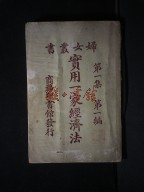 書叢女婦
第一集第一編
實用一家經濟法
商務印書館發行